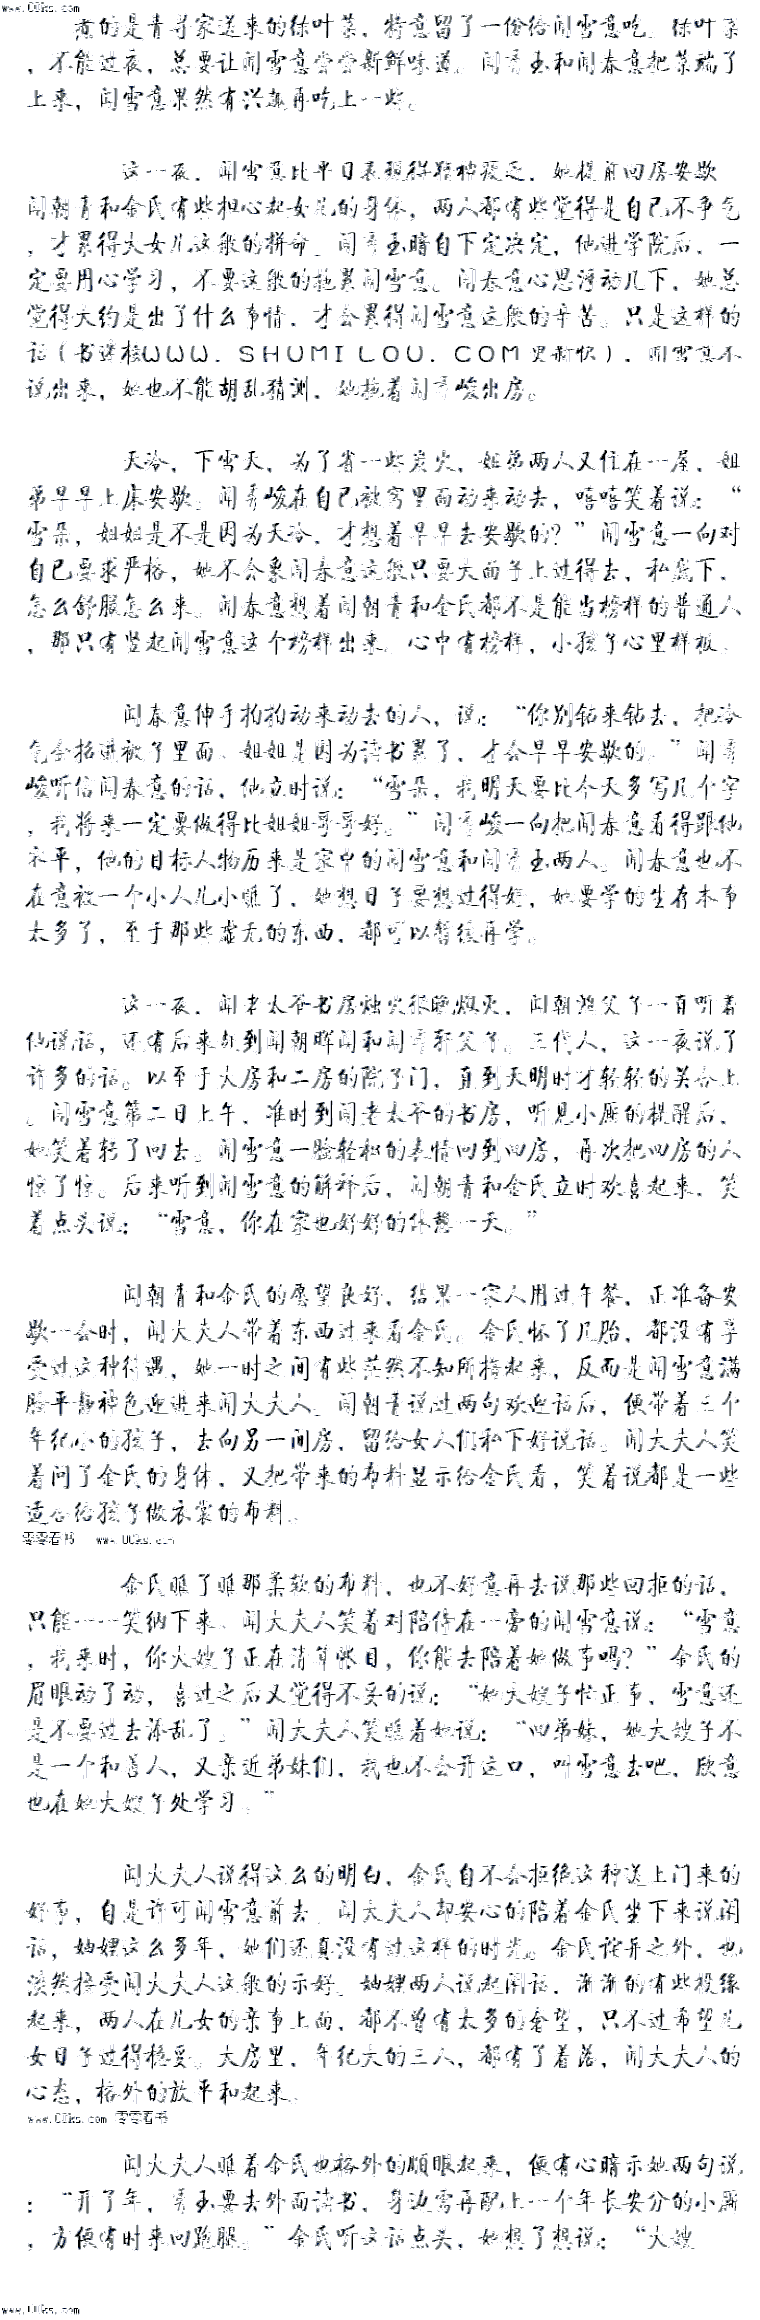 www.00ks.com
煮的是青寻家送来的绿叶菜，特意留了一份给闻雪意吃。绿叶菜
，不能过夜，总要让闻雪意尝尝新鲜味道。闻秀玉和闻春意把菜端了
上来，闻雪意果然有兴趣再吃上一些。
这一夜，闻雪意比平日表现得精神疲乏，她提前回房安歇
闻朝青和金氏有些担心起女儿的身体，两人都有些觉得是自己不争气
，才累得大女儿这般的拼命。闻秀玉暗自下定决定，他进学院后，一
定要用心学习，不要这般的拖累闻雪意。闻春意心思浮动几下，她总
觉得大约是出了什么事情，才会累得闻雪意这般的辛苦。只是这样的
话（书迷楼WWW．SHUMILOU．COM更新快），闻雪意不
说出来，她也不能胡乱猜测，她拖着闻秀峻出房。
天冷，下雪天，为了省一些炭火，姐弟两人又住在一屋，姐
弟早早上床安歇。闻秀峻在自己被窝里面动来动去，嘻嘻笑着说：“
雪朵，姐姐是不是因为天冷，才想着早早去安歇的？”闻雪意一向对
自己要求严格，她不会象闻春意这般只要大面子上过得去，私底下，
怎么舒服怎么来。闻春意想着闻朝青和金氏都不是能当榜样的普通人
，那只有竖起闻雪意这个榜样出来。心中有榜样，小孩子心里样板。
闻春意伸手拍拍动来动去的人，说：“你别钻来钻去，把冷
气会招进被子里面。姐姐是因为读书累了，才会早早安歇的。”闻秀
峻听信闻春意的话，他立时说：“雪朵，我明天要比今天多写几个字
，我将来一定要做得比姐姐哥哥好。”闻秀峻一向把闻春意看得跟他
水平，他的目标人物历来是家中的闻雪意和闻秀玉两人。闻春意也不
在意被一个小人儿小瞧了，她想日子要想过得好，她要学的生存本事
太多了，至于那些虚无的东西，都可以暂缓再学。
这一夜，闻老太爷书房烛火很晚熄灭，闻朝鸿父子一直听着
他说话，还有后来赶到闻朝晖闻和闻秀轩父子。三代人，这一夜说了
许多的话。以至于大房和二房的院子门，直到天明时才轻轻的关合上
。闻雪意第二日上午，准时到闻老太爷的书房，听见小厮的提醒后，
她笑着转了回去。闻雪意一脸轻松的表情回到四房，再次把四房的人
惊了惊。后来听到闻雪意的解释后，闻朝青和金氏立时欢喜起来，笑
着点头说：“雪意，你在家也好好的休憩一天。”
闻朝青和金氏的愿望良好，结果一家人用过午餐，正准备安
歇一会时，闻大夫人带着东西过来看金氏。金氏怀了几胎，都没有享
受过这种待遇，她一时之间有些茫然不知所措起来，反而是闻雪意满
脸平静神色迎进来闻大夫人。闻朝青说过两句欢迎话后，便带着三个
年纪小的孩子，去向另一间房，留给女人们私下好说话。闻大夫人笑
着问了金氏的身体，又把带来的布料显示给金氏看，笑着说都是一些
适合给孩子做衣裳的布料。
零零看书 www.00ks.com
金氏瞧了瞧那柔软的布料，也不好意再去说那些回拒的话，
只能一一笑纳下来。闻大夫人笑着对陪侍在一旁的闻雪意说：“雪意
，我来时，你大嫂子正在清算帐目，你能去陪着她做事吗？”金氏的
眉眼动了动，喜过之后又觉得不妥的说：“她大嫂子忙正事，雪意还
是不要过去添乱了。”闻大夫人笑瞧着她说：“四弟妹，她大嫂子不
是一个和善人，又亲近弟妹们，我也不会开这口，叫雪意去吧，欣意
也在她大嫂子处学习。”
闻大夫人说得这么的明白，金氏自不会拒绝这种送上门来的
好事，自是许可闻雪意前去。闻大夫人却安心的陪着金氏坐下来说闲
话，妯娌这么多年，她们还真没有过这样的时光。金氏诧异之外，也
淡然接受闻大夫人这般的示好。妯娌两人说起闲话，渐渐的有些投缘
起来，两人在儿女的亲事上面，都不曾有太多的奢望，只不过希望儿
女日子过得稳妥。大房里，年纪大的三人，都有了着落，闻大夫人的
心态，格外的放平和起来。
www.00ks.com 零零看书
闻大夫人瞧着金氏也格外的顺眼起来，便有心暗示她两句说
：“开了年，秀玉要去外面读书，身边需再配上一个年长安分的小厮
，方便有时来回跑腿。”金氏听这话点头，她想了想说：“大嫂
www.00ks.com